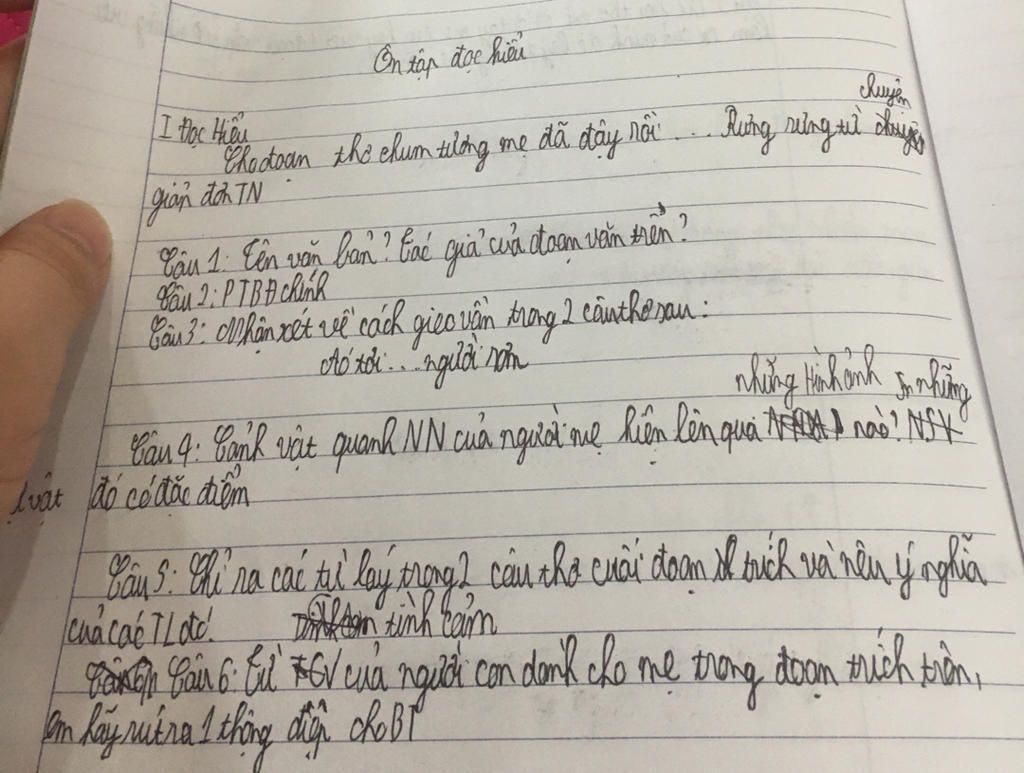 Ôn tập đọc hiểu
chuyện
I Đọc Hiểu
Cho đoạn thơ chum tương mẹ đã đậy rồi ... Rưng rưng từ
giản đơn TN
Câu 1: Tên văn bản? Tác giả của đoạn văn trên?
Câu 2: PTBĐ chính
Câu 3: Nhận xét về cách gieo vần trong 2 câu thơ sau:
Áo tơi ... người rơm
những Hình ảnh những
Câu 4: Cảnh vật quanh NN của người mẹ hiện lên qua nào?
vật đó có đặc điểm
Câu 5: Chỉ ra các từ láy trong 2 câu thơ cuối đoạn trích và nêu ý nghĩa
của các TL đó.
tình cảm
Câu 6: Từ của người con dành cho mẹ trong đoạn trích trên,
em hãy rút ra 1 thông điệp cho BT